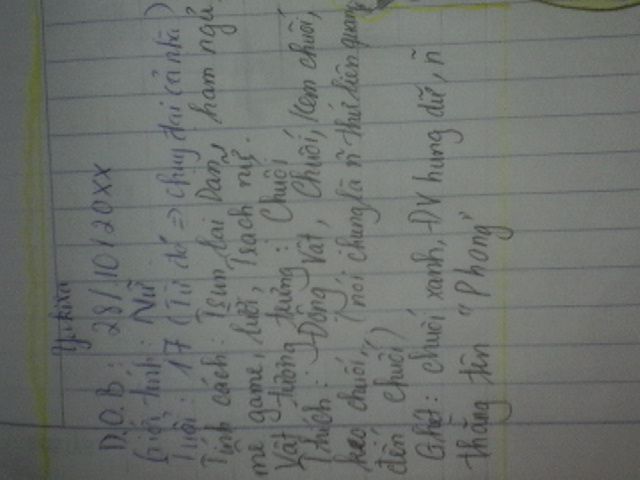 Yukixa
D.O.B : 28/10/20XX
Giới tính : Nữ
Tuổi : 17 (Từ đó => chung đai cả nhà)
Tính cách : Trùm lai Dan, ham ngủ
mê game, lười, Trạch nữ.
Vật tượng trưng : Chuối
Thích : Động vật, Chuối, Kem chuối,
kẹo chuối, (nói chung là n~ thứ liên quan
đến chuối)
Ghét : chuối xanh, ĐV hung dữ, n~
thằng tên "Phong"